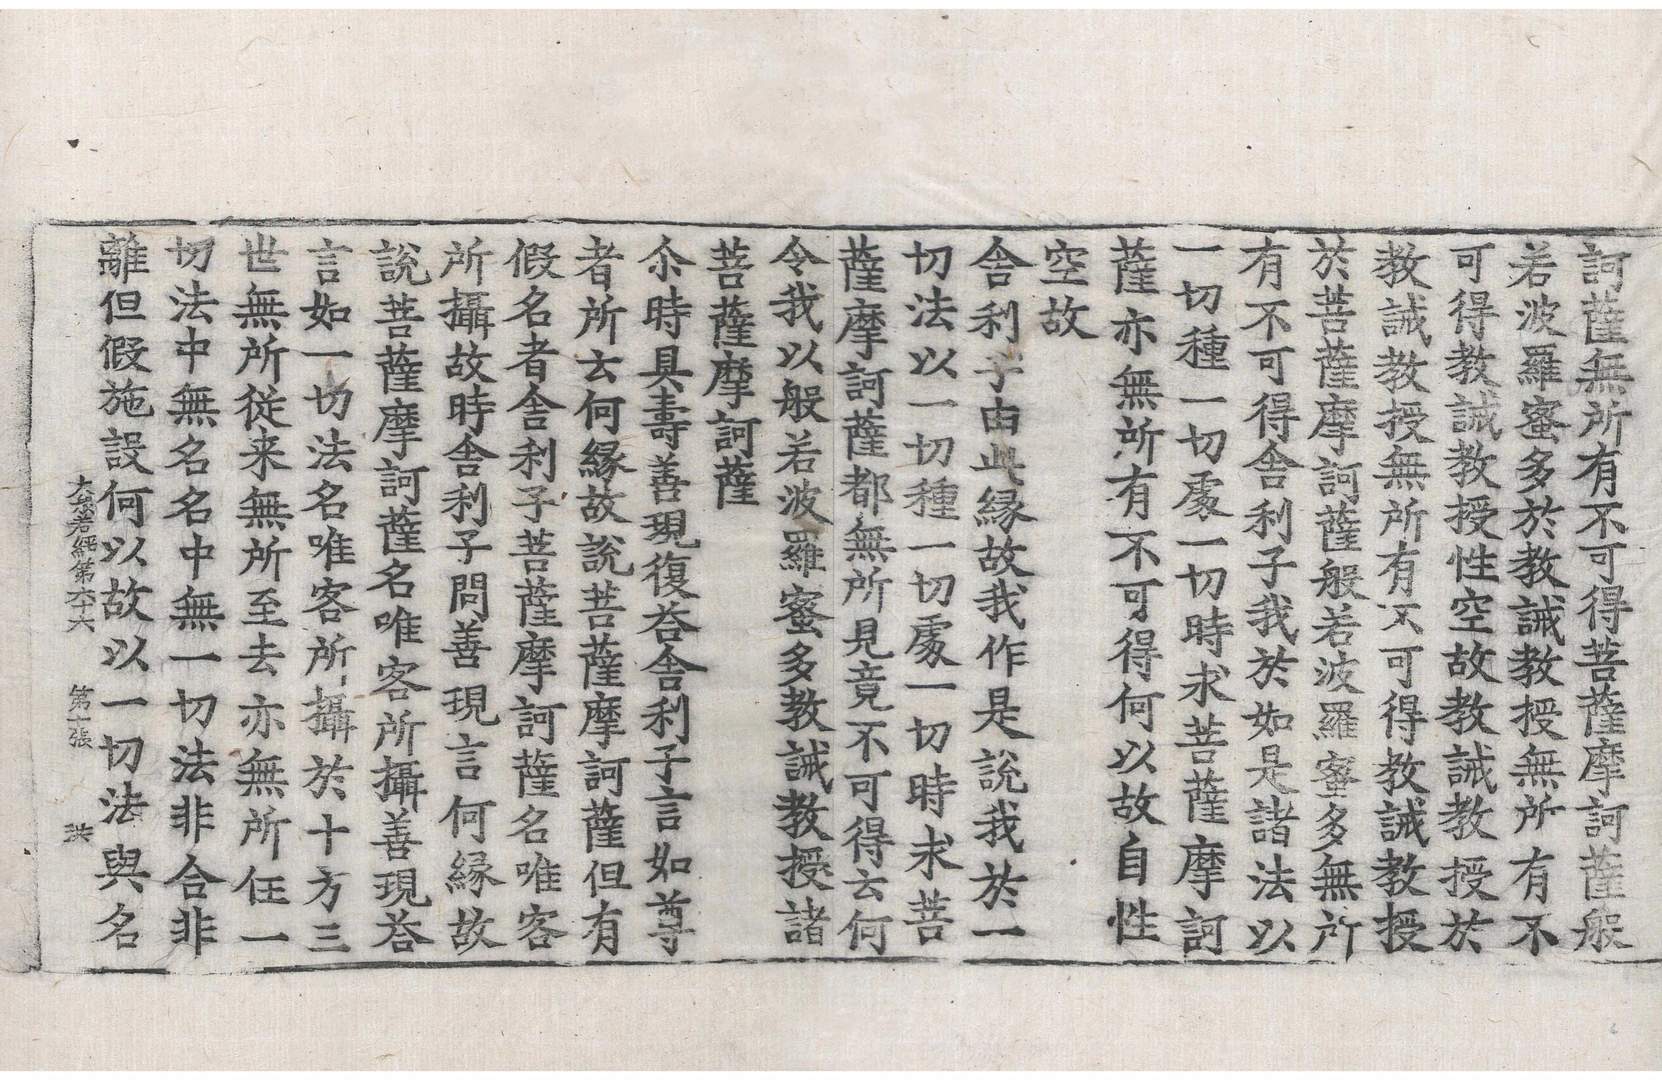 訶薩無所有不可得菩薩摩訶薩般
若波羅蜜多於教誡教授無所有不
可得教誡教授性空故教誡教授於
教誡教授無所有不可得教誡教授
於菩薩摩訶薩般若波羅蜜多無所
有不可得舍利子我於如是諸法以
一切種一切處一切時求菩薩摩訶
薩亦無所有不可得何以故自性
空故
舍利子由此緣故我作是說我於一
切法以一切種一切處一切時求菩
薩摩訶薩都無所見竟不可得云何
令我以般若波羅蜜多教誡教授諸
菩薩摩訶薩
尒時具壽善現復荅舍利子言如尊
者所云何緣故說菩薩摩訶薩但有
假名者舍利子菩薩摩訶薩名唯客
所攝故時舍利子問善現言何緣故
說菩薩摩訶薩名唯客所攝善現荅
言如一切法名唯客所攝於十方三
世無所從来無所至去亦無所住一
切法中無名名中無一切法非合非
離但假施設何以故以一切法與名
大般若經第六十六 第十張 洪